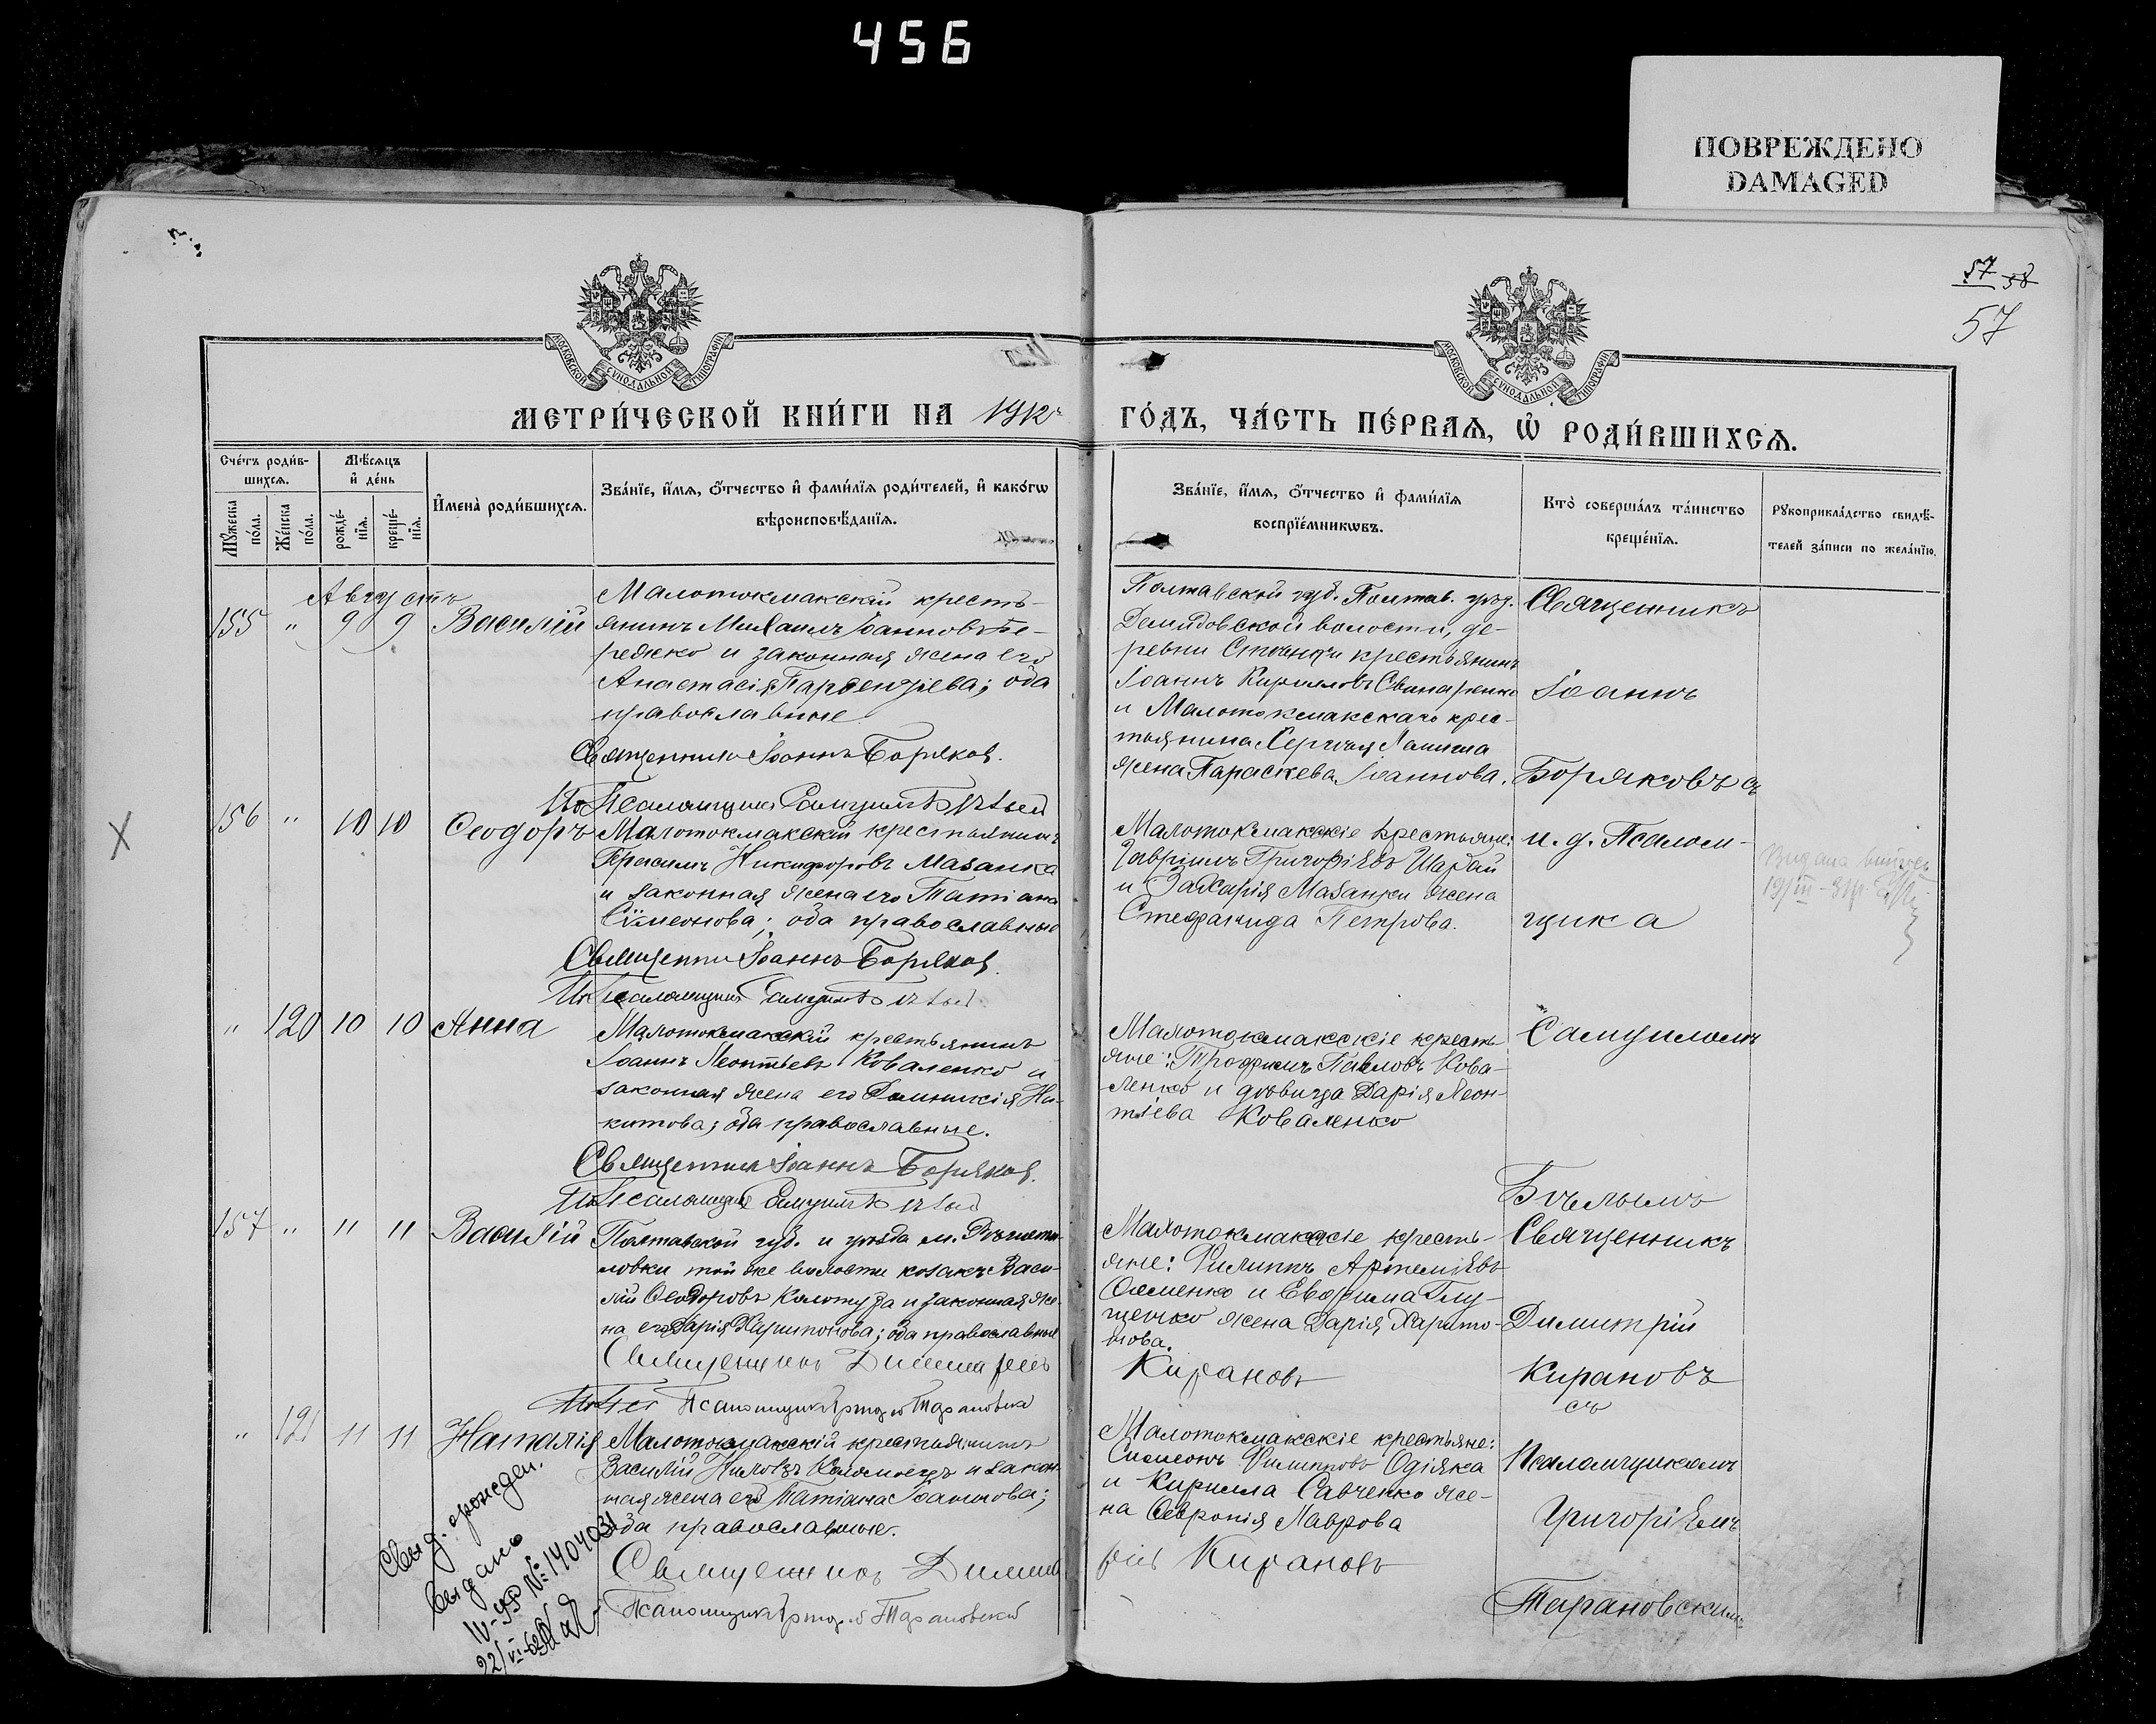 456
ПОВРЕЖДЕНО
DAMAGED
57 58
57
МОСКОВСКОЙ СУНОДАЛЬНОЙ ТИПОГРАФІИ
МОСКОВСКОЙ СУНОДАЛЬНОЙ ТИПОГРАФІИ
МЕТРИ́ЧЕСКОЙ КНИ́ГИ НА 1912
ГО́ДЪ, ЧА́СТЬ ПЕ́РВАѦ, Ѡ РОДИ́ВШИХСѦ.
Сче́тъ роди́в-
шихсѧ.
Мѣ́сѧцъ
и҆ де́нь
Мꙋ́жеска
по́ла.
Же́нска
по́ла.
рожде́-
нїѧ.
креще́-
нїѧ.
И҆мена̀ роди́вшихсѧ.
Зва́нїе, и҆́мѧ, ѻ҆́тчество и҆ фами́лїѧ роди́телей, и҆ како́гѡ
вѣроисповѣ́данїѧ.
Зва́нїе, и҆́мѧ, ѻ҆́тчество и҆ фами́лїѧ
воспрїе́мникѡвъ.
Кто̀ соверша́лъ та́инство
креще́нїѧ.
Рꙋкоприкла́дство свидѣ́-
телей за́писи по жела́нїю.
Августъ
155 " 9 9 Василій
Малотокмакскій кресть-
янинъ Михаилъ Іоанновъ Бе-
режко и законная жена его
Анастасія Парѳентіева; оба
православные
Священникъ Іоаннъ Боряков.
Псаломщика Самуилъ Бѣлый
Полтавской губ. Полтав. уѣзд.
Демидовской волости, де-
ревни крестьянинъ
Іоаннъ Кирилловъ Свинаренко
и Малотокмакскаго крес-
тьянина Сергія Лашина
жена Параскева Іоаннова.
Священникъ
Іоаннъ
Боряковъ съ
156 " 10 10 Ѳеодоръ
Малотокмакскій крестьянинъ
Герасимъ Никифоровъ Мазанка
и законная жена его Татіана
Сѵмеонова; оба православные
Священникъ Іоаннъ Боряков.
Псаломщика Самуилъ Бѣлый
Малотокмакскіе крестьяне:
Гавріилъ Григоріевъ Шарай
и Захарія Мазанки жена
Стефанида Петрова.
и. д. Псалом-
щика
" 120 10 10 Анна
Малотокмакскій крестьянинъ
Іоаннъ Леонтьевъ Коваленко и
законная жена его Домникія Ни-
китова; оба православные.
Священникъ Іоаннъ Боряков.
Псаломщика Самуилъ Бѣлый
Малотокмакскіе кресть-
яне: Трофимъ Павловъ Кова-
ленко и дѣвица Дарія Леон-
тіева Коваленко
Самуиломъ
Бѣлымъ
157 " 11 11 Василій
Полтавской губ. и уѣзда м. Рѣшети-
ловки той же волости козакъ Васи-
лій Ѳеодоровъ Колотуха и законная же-
на его Дарія Харитонова; оба православные
Священникъ Димитрій
Псаломщикъ Григорій Тарановскій
Малотокмакскіе кресть-
яне: Филиппъ Артеміевъ
Семенко и Евфима Глу-
щенко жена Дарія Харито-
нова.
Кирановъ
Священникъ
Димитрій
Кирановъ
съ
" 121 11 11 Наталія
Малотокмакскій крестьянинъ
Василій Ниловъ Коломоецъ и закон-
ная жена его Татіана Іоаннова;
оба православные.
Священникъ Димит
Псаломщикъ Григорій Тарановскій
Малотокмакскіе крестьяне:
Симеонъ Филипповъ Одіяка
и Кирилла Савченко же-
на Ѳевронія Лаврова
рій Кирановъ
Псаломщикомъ
Григоріемъ
Тарановскимъ
Свид. о рожден.
выдано
IV-УР № 1404031
22/VI-62